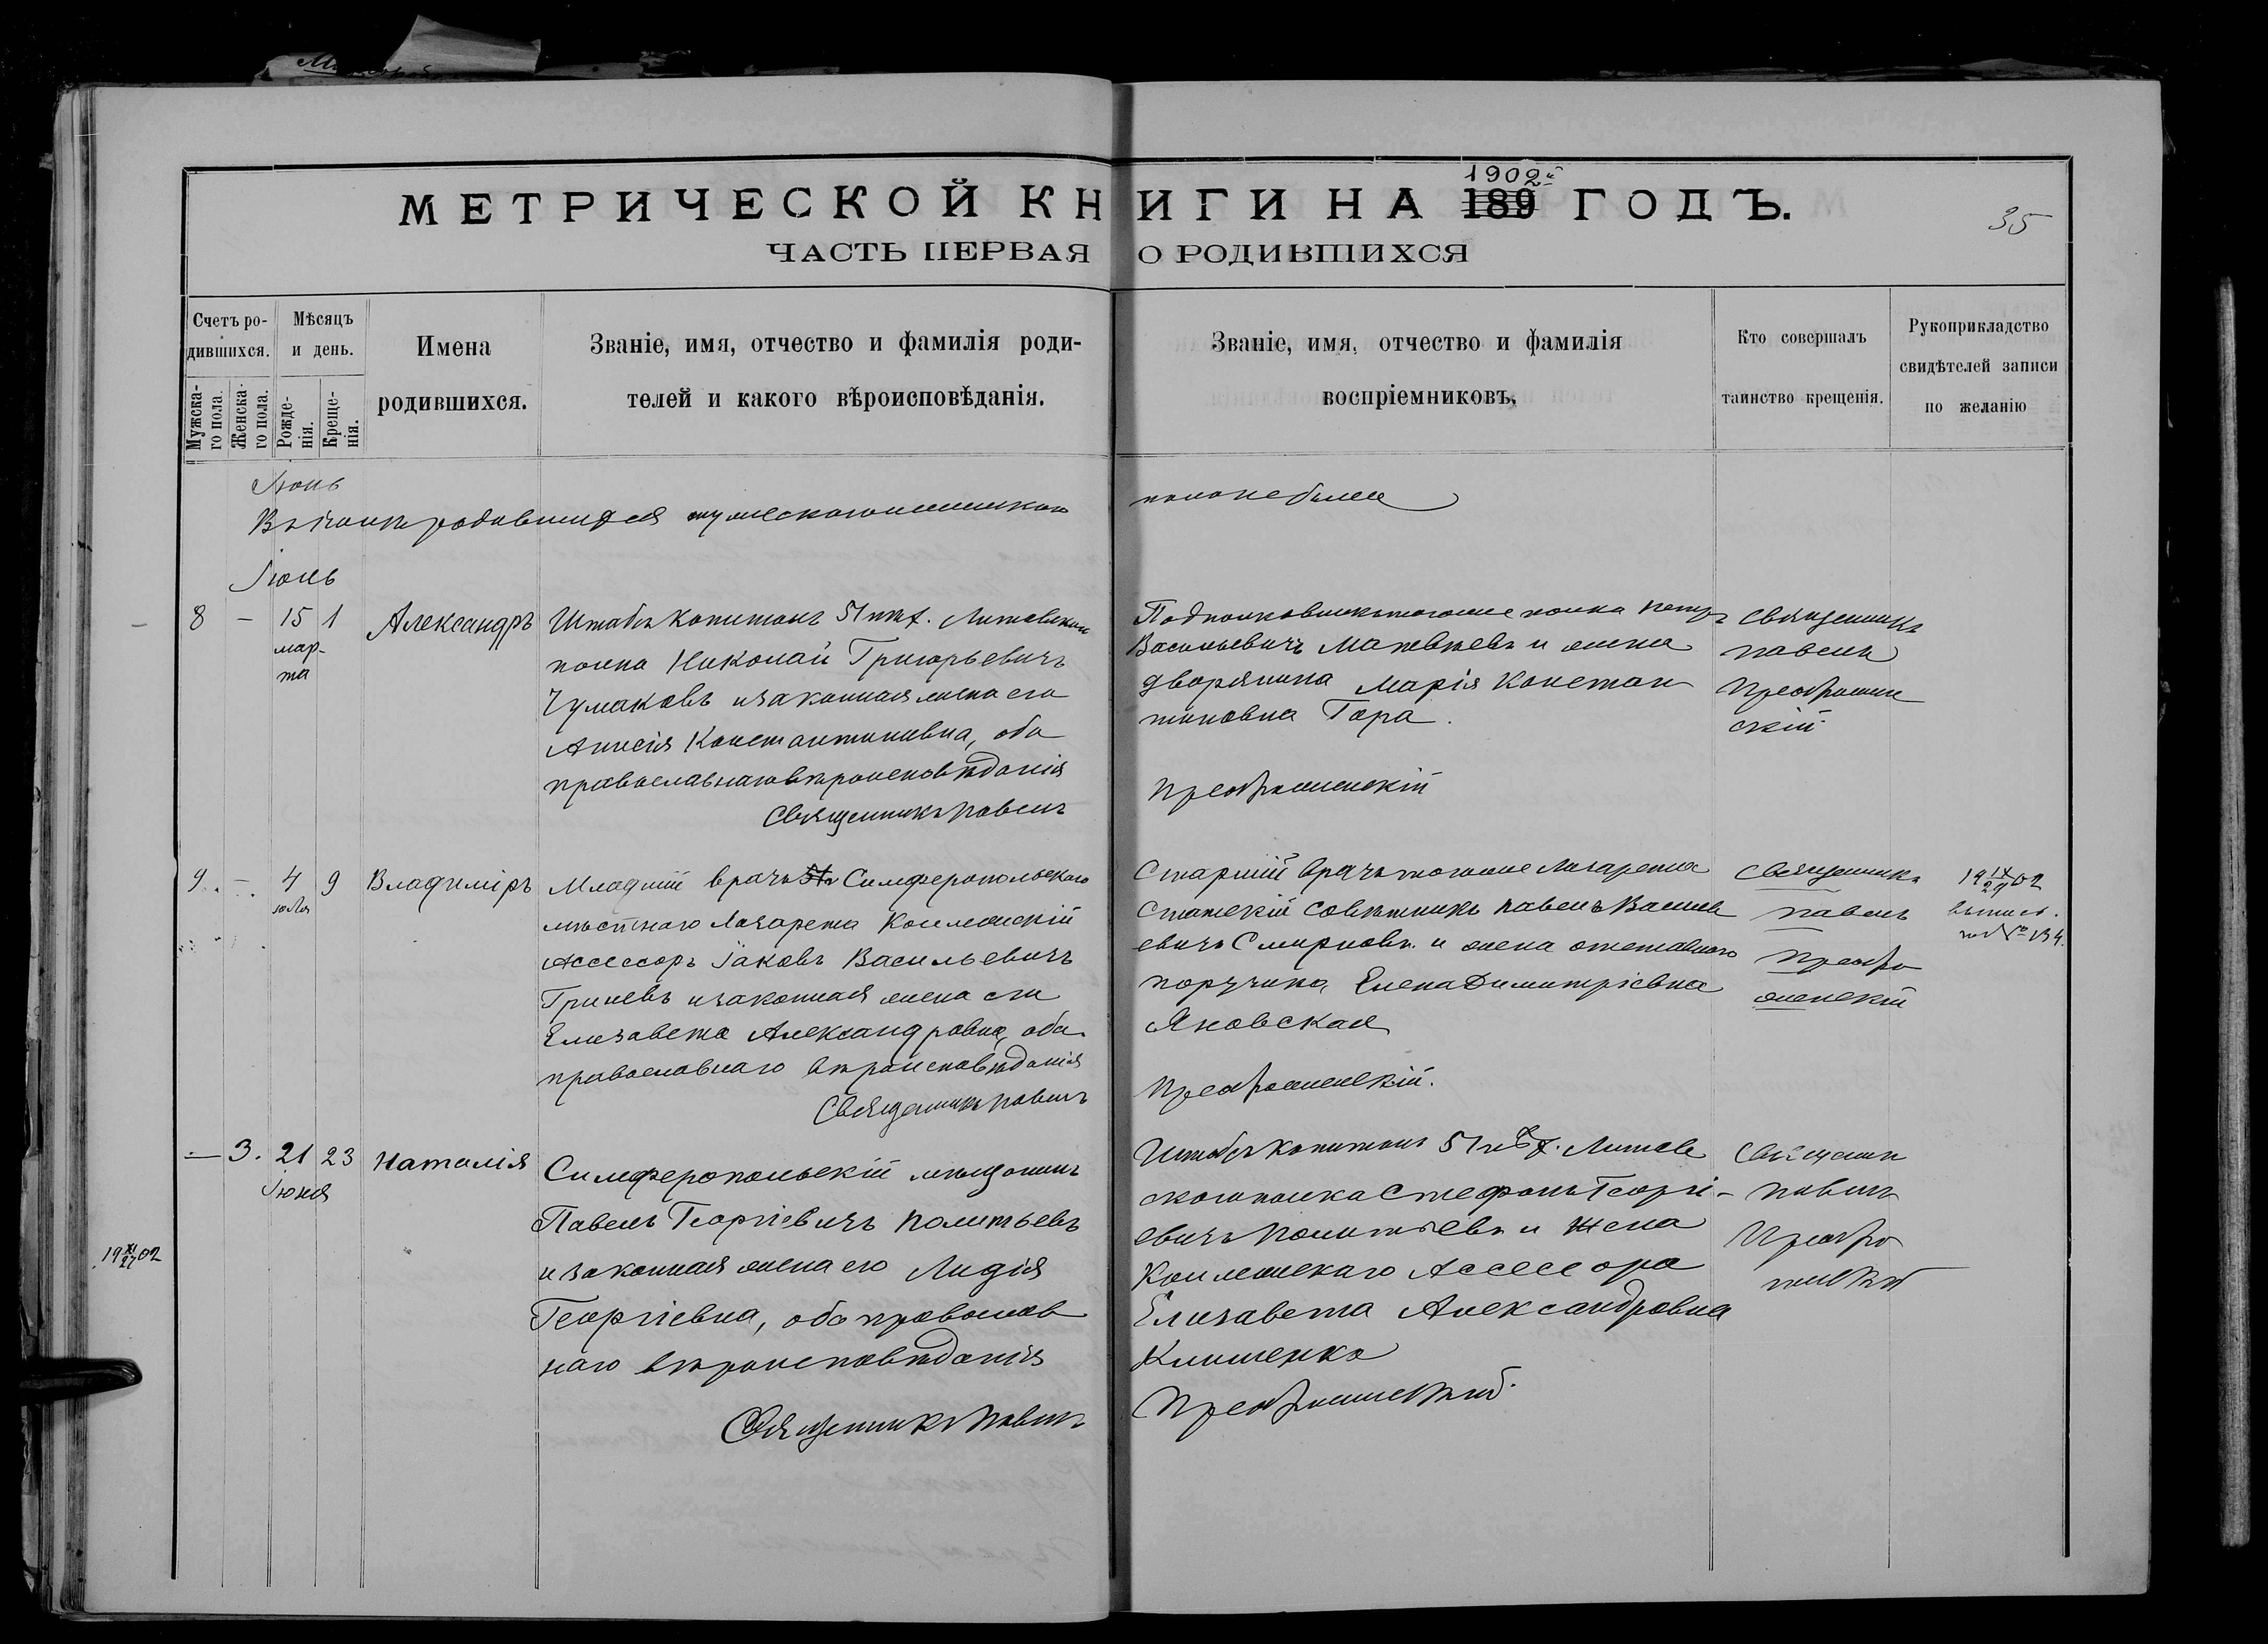 МЕТРИЧЕСКОЙ КНИГИ НА 189 1902й ГОДЪ.
35
ЧАСТЬ ПЕРВАЯ О РОДИВШИХСЯ
Счетъ ро-
дившихся.
Мужска-
го пола.
Женска-
го пола.
Мѣсяцъ
и день.
Рожде-
нія.
Креще-
нія.
Имена
родившихся.
Званіе, имя, отчество и фамилія роди-
телей и какого вѣроисповѣданія.
Званіе, имя, отчество и фамилія
воспріемниковъ.
Кто совершалъ
таинство крещенія.
Рукоприкладство
свидѣтелей записи
по желанію
Іюнь
родившихся мужескаго и женскаго
пола не было
Іюль
8 — 15 1 Александръ
мар-
та
Штабсъ Капитанъ 51 пѣх. Литовскаго
полка Николай Григорьевичъ
Чумаковъ и законная жена его
Анисія Константиновна, оба
православнаго вѣроисповѣданія
Священникъ Павелъ
Подполковникъ того же полка Петръ
Васильевичъ Матвѣевъ и жена
дворянина Марія Констан-
тиновна Гора.
Преображенскій
Священникъ
Павелъ
Преображен
скій
9. — 4 9 Владиміръ
іюля
Младшій врачъ Симферопольскаго
мѣстнаго Лазарета Коллежскій
Ассессоръ Іаковъ Васильевичъ
Гриневъ и законная жена его
Елизавета Александровна, оба
православнаго вѣроисповѣданія
Священникъ Павелъ
Старшій врачъ того же Лазарета
Статскій Совѣтникъ Павелъ Василь
евичъ Смирновъ и жена отставного
поручика Елена Димитріевна
Яновская
Преображенскій.
Священникъ
Павелъ
Преобра
женскій
19 IX/29 02
выпис.
под № 134.
— 3. 21 23 Наталія
Іюня
19 XI/27 02
Симферопольскій мѣщанинъ
Павелъ Георгіевичъ Политьевъ
и законная жена его Лидія
Георгіевна, оба православ
наго вѣроисповѣданія
Священникъ Павелъ
Штабсъ Капитанъ 51 пѣх. Литов
скаго полка Стефанъ Георгі-
евичъ Политьевъ и жена
Коллежскаго Ассессора
Елизавета Александровна
Клименко
Преображенскій.
Священ
Павелъ
Преобра
женскій